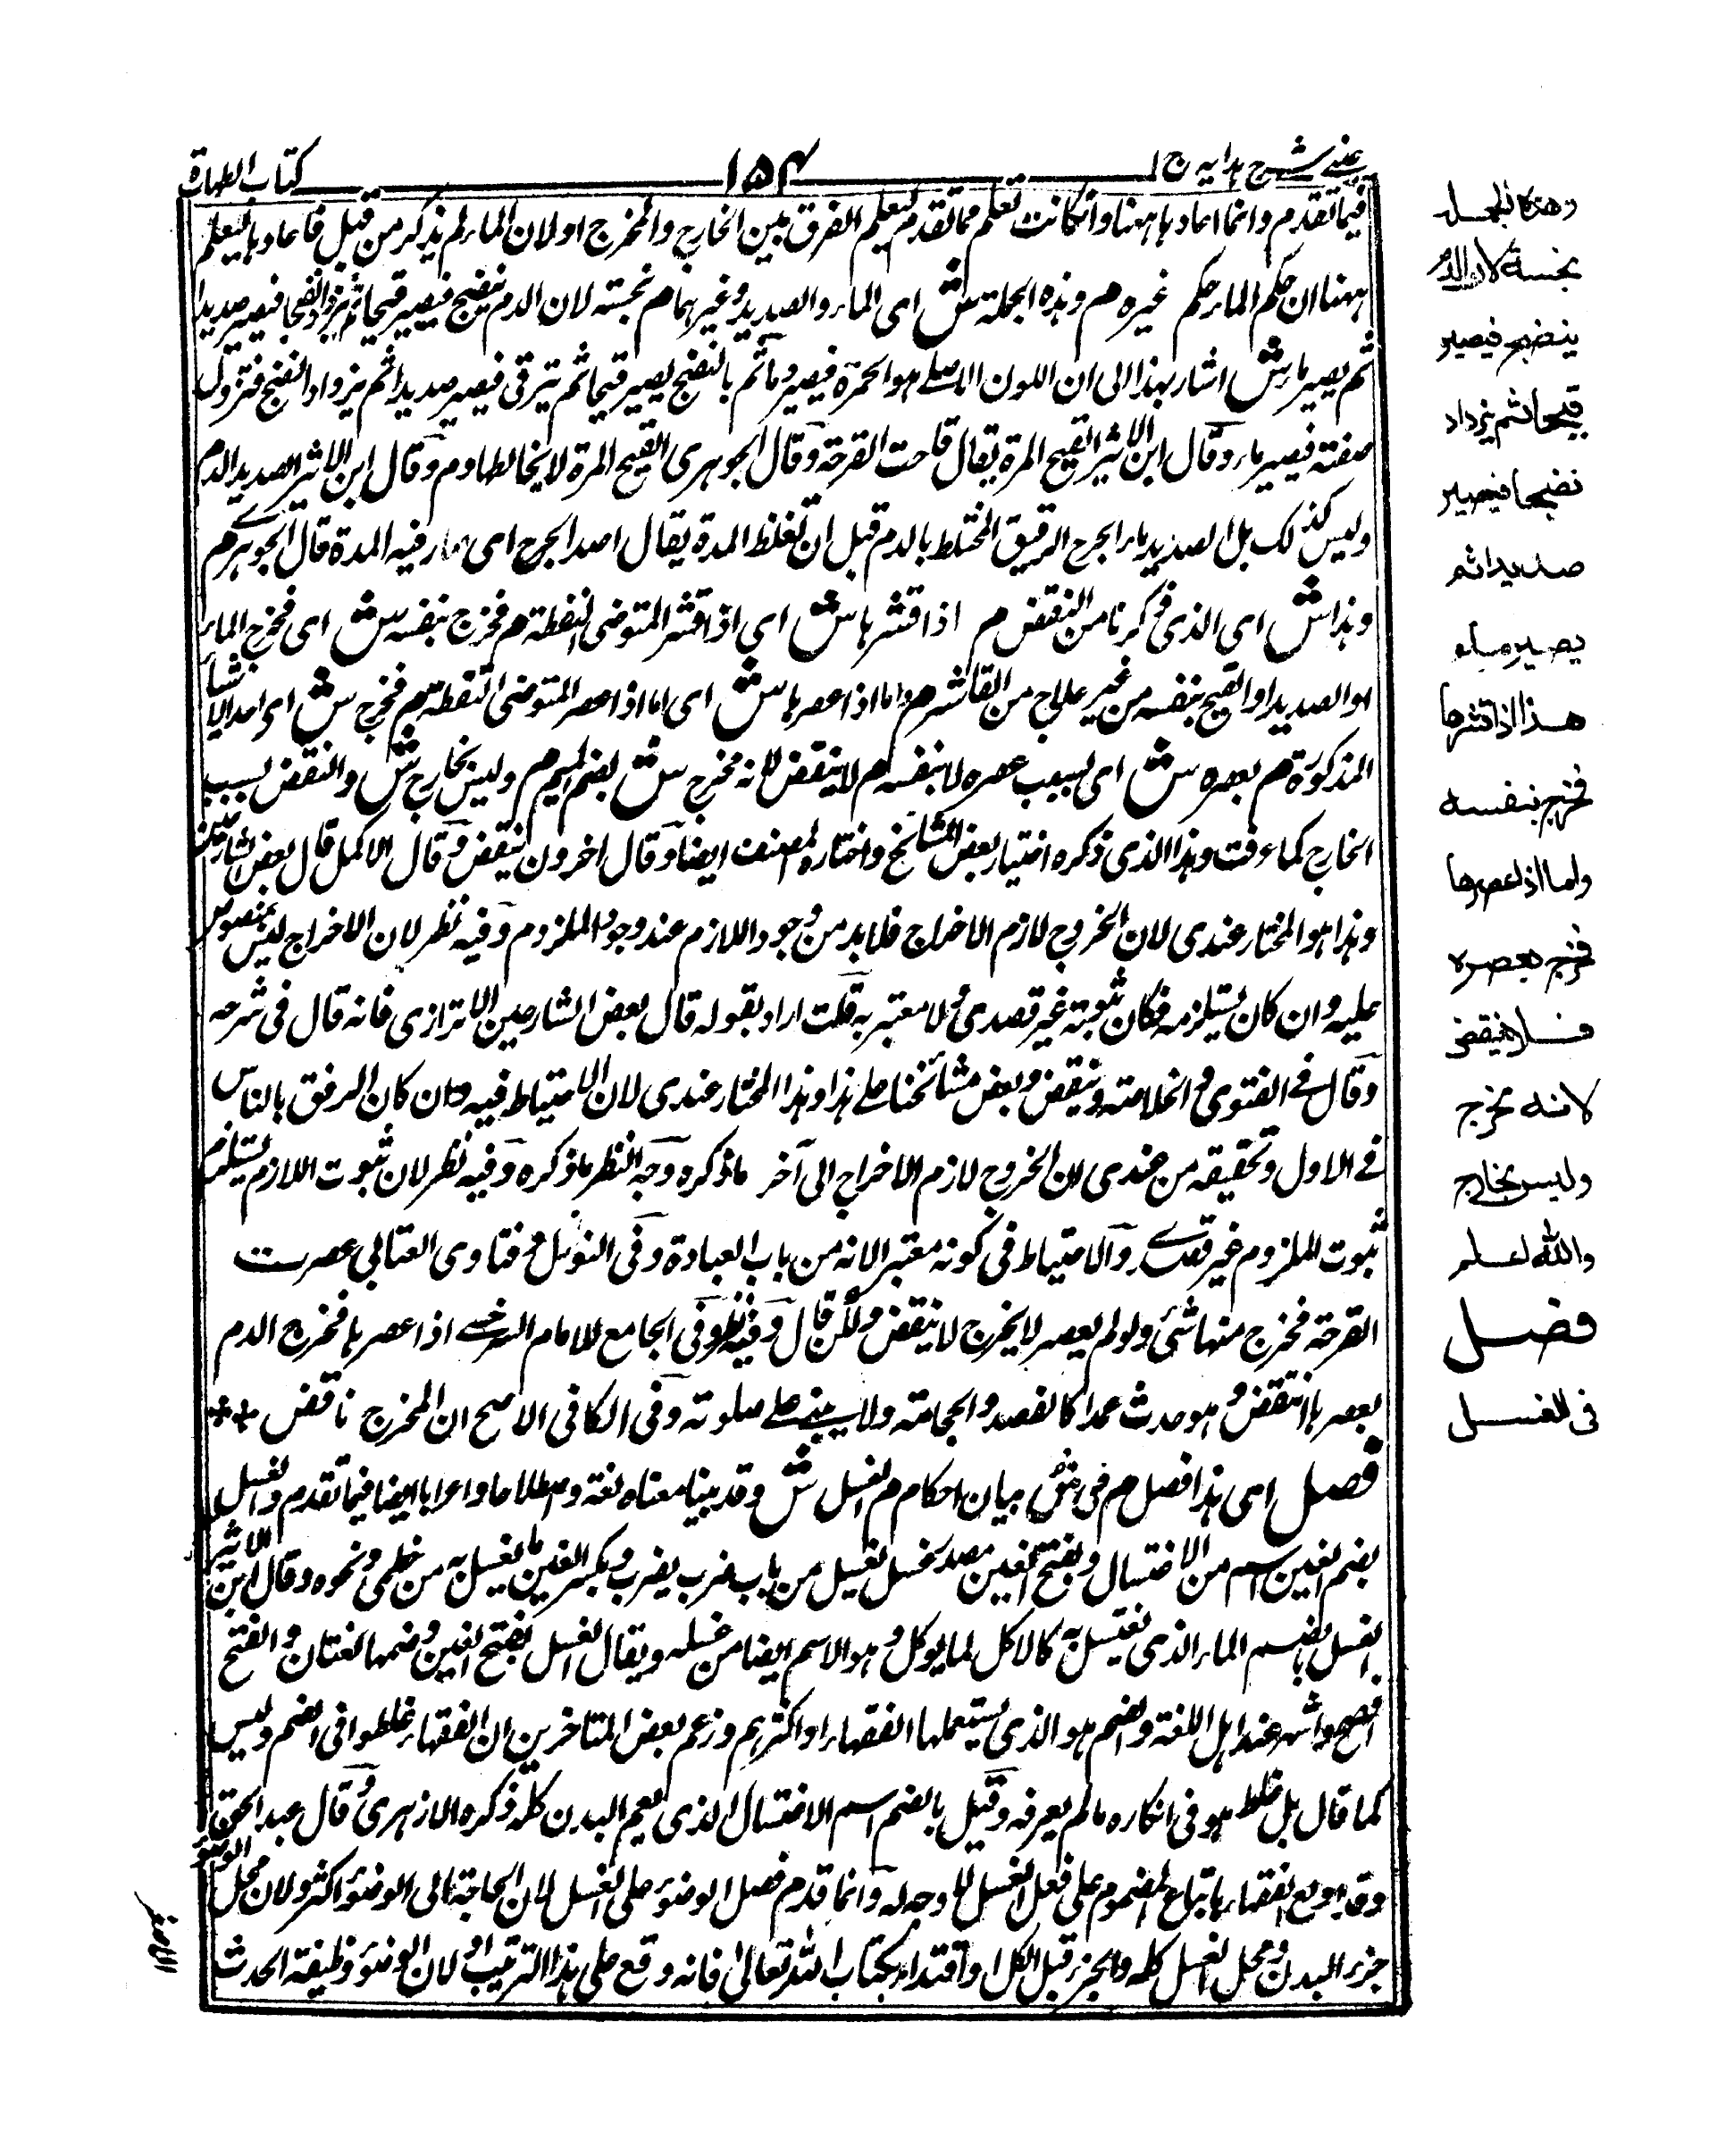 عينى شرح هدايه ج ١
١٥٤
كتاب الطهارة
فيما تقدم وانما اعادها ههنا وان كانت تعلم مما تقدم ليعلم الفرق بين الخارج والمخرج او لان الماء لم يذكر من قبل فاعادها ليعلم
ههنا ان حكم الماء حكم غيره م وهذه الجملة ش اى الماء والصديد وغيرهما م نجسة لان الدم ينضج فيصير قيحا ثم يزداد نضجا فيصير صديدا
ثم يصير ماء ش اشار بهذا الى ان اللون الاصلے هو الحمرة فيصير دما ثم بالنضج يصير قيحا ثم يترقى فيصير صديدا ثم يزداد النضج فتزول
صفته فيصير ماء وقال ابن الاثير القيح المرة يقال قاحت القرحة وقال الجوهرى القيح المرة لا يخالطها دم وقال ابن الاثير الصديد الدم
وليس كذلك بل الصديد ماء الجرح الرقيق المختلط بالدم قبل ان تغلظ المدة يقال اصد الجرح اى صار فيه المدة قال الجوهرے م
وهذا ش اى الذى ذكرنا من النقض م اذا قشرها ش اى اذا قشر المتوضى النفطة م فخرج بنفسه ش اى فخرج الماء
او الصديد او القيح بنفسه من غير علاج من القاشر م واما اذا عصرها ش اى اما اذا عصر المتوضى النفطة م فخرج ش اى احد الاشياء
المذكورة م بعصره ش اى بسبب عصره لا بنفسه م لا ينقض لانه مخرج ش بضم الميم م وليس بخارج ش والنقض بسبب
الخارج كما عرفت وهذا الذى ذكره اختيار بعض المشائخ واختاره المصنف ايضا وقال اخرون ينقض وقال الاكمل قال بعض الشارحين
وهذا هو المختار عندى لان الخروج لازم الاخراج فلا بد من وجود اللازم عند وجود الملزوم وفيه نظر لان الاخراج ليس بمنصوص
عليه وان كان يستلزمه فكان ثبوته غير قصدى ولا معتبر به قلت اراد بقوله قال بعض الشارحين الاترازى فانه قال فى شرحه
وقال فے الفتوى والخلاصة وينقض وبعض مشائخنا على هذا وهذا المختار عندى لان الاحتياط فيه وان كان الرفق بالناس
فے الاول وتحقيقه من عندى لان الخروج لازم الاخراج الى آخر ما ذكره وجه النظر ما ذكره وفيه نظر لان ثبوت اللازم يستلزم
ثبوت الملزوم غير قصدے والاحتياط فى كونه معتبرا لانه من باب العبادة وفى النوازل وفتاوى العتابي عصرت
القرحة فخرج منها شئ ولو لم يعصر لا يخرج لا ينقض ولكن قال وفيه نظر وفى الجامع للامام السرخسے اذا عصرها فخرج الدم
بعصرها انتقض وهو حدث عمدا كالفصد والحجامة ولا يبنى على صلوته وفى الكافى الاصح ان المخرج ناقض
فصل اى هذا فصل م فى ش بيان احكام م الغسل ش وقد بينا معناه لغة واصطلاحا واعرابا ايضا فيما تقدم والغسل
بضم الغين اسم من الاغتسال وبفتح الغين مصدر غسل يغسل من باب ضرب يضرب وبكسر الغين ما يغسل به من خطمى ونحوه وقال ابن الاثير
الغسل بالضم الماء الذى يغتسل به كالاكل لما يؤكل وهو الاسم ايضا من غسله ويقال الغسل بفتح الغين وضمها لغتان والفتح
افصح واشهر عند اهل اللغة والضم هو الذى يستعملها الفقهاء او اكثرهم وزعم بعض المتاخرين ان الفقهاء غلطوا فى الضم وليس
كما قال بل غلط هو فى انكاره ما لم يعرفه وقيل بالضم اسم الاغتسال الذى يعم البدن كله ذكره الازهرى وقال عبد الحق
الفقهاء باتباع المضموم على فعل الغسل لا وجه له وانما قدم فصل الوضوء على الغسل لان الحاجة الى الوضوء اكثر ولان محل الوضوء
جزء البدن ومحل الغسل كله والجزء قبل الكل او اقتداء بكتاب الله تعالى فانه وقع على هذا الترتيب او لان الوضوء وظيفة الحدث
وهذه الجملة
نجسة لان الدم
ينضج فيصير
قيحا ثم يزداد
نضجا فيصير
صديدا ثم
يصير ماء
هذا اذا قشرها
فخرج بنفسه
واما اذا عصرها
فخرج بعصره
فلا ينقض
لانه مخرج
وليس بخارج
والله اعلم
فصل
فى الغسل
الاصغر